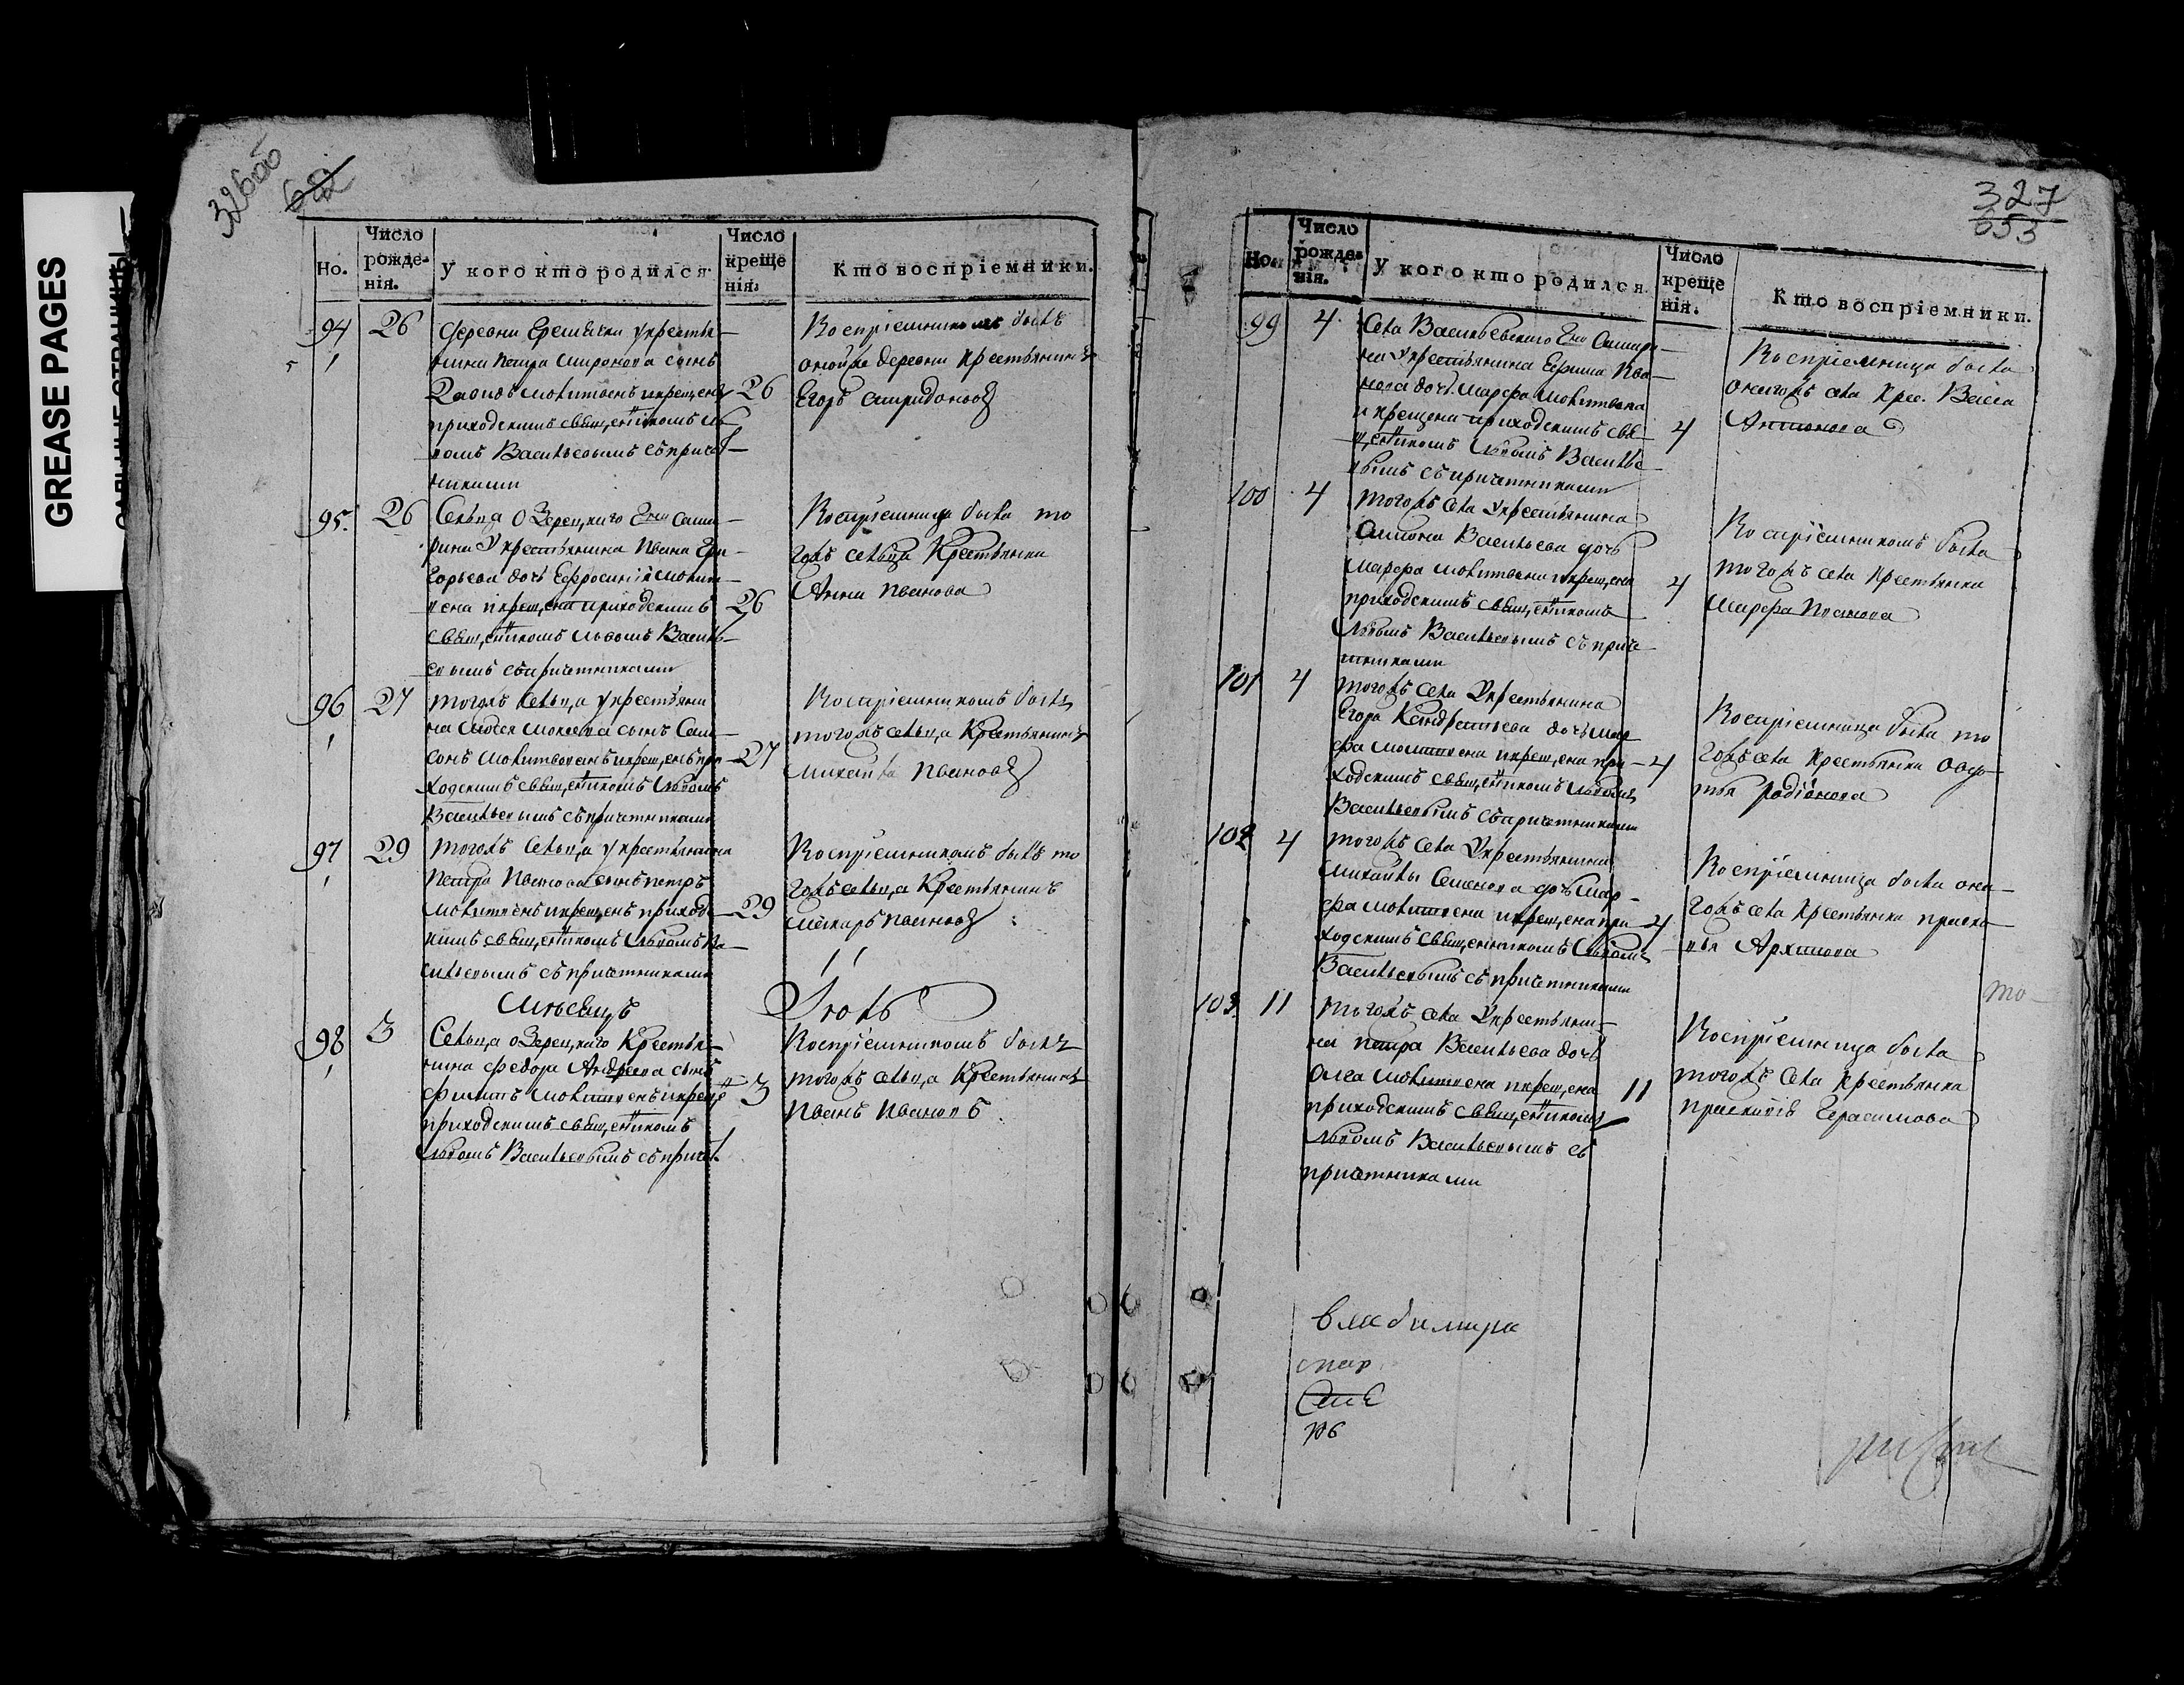 GREASE PAGES
326об
682
Но.
Число рожде-нія.
У кого кто родился.
Число креще нія.
Кто воспріемники.
94
26
деревни Ерешѣчки Укрестья-
нина Петра Миронова сынъ
Давидъ молитвенъ икрещенъ
приходскимъ священникомъ Ль
вомъ Васильевымъ съпричет-
никами
26
Воспріемникомъ былъ
оной же деревни крестьянинъ
Егоръ Спиридоновъ
95.
26
Сельца Озерецкаго
рина Укрестьянина Ивана Гри-
горьева дочь Ефросинія молит-
вена икрещена приходскимъ
священникомъ Львомъ Василь-
евымъ съпричетниками
26
Воспріемница была то
гожъ сельца Крестьянка
Анна Иванова
96
27
тогожъ Сельца Укрестьяни
на Моисея сынъ Сам-
сонъ молитвенъ икрещенъ при-
ходскимъ священникомъ Львомъ
Васильевымъ съпричетниками
27
Воспріемникомъ былъ
тогожъ сельца Крестьянинъ
Михайла Ивановъ
97
29
тогожъ Сельца Укрестьянина
Петра Иванова сынъ Петръ
молитвенъ икрещенъ приход-
скимъ священникомъ Львомъ Ва-
сильевымъ съ причетниками
29
Воспріемникомъ былъ то
гожъ сельца Крестьянинъ
Макаръ Ивановъ
Мѣсяцъ
Іюль
98
3
Сельца Озерецкаго Крестья-
нина Федора Андреева сынъ
Филипъ молитвенъ икрещенъ
приходскимъ священникомъ
Львомъ Васильевымъ съпричет.
3
Воспріемникомъ былъ
тогожъ сельца Крестьянинъ
Иванъ Ивановъ
327
653
Но.
Число рожде-нія.
У кого кто родился.
Число креще нія.
Кто воспріемники.
99
4.
Села Васильевскаго
на Укрестьянина Ефима Ива-
нова дочь Марфа молитвена
и крещена приходскимъ свя-
щенникомъ Львомъ Василье-
вымъ съпричетниками
4
Воспріемница была
оногожъ села Крес. Васса
Антонова
100
4
тогожъ села Укрестьянина
Антона Васильева дочь
Марфа молитвена икрещена
приходскимъ священникомъ
Львомъ Васильевымъ съ приче-
тниками
4
Воспріемникомъ была
тогожъ села Крестьянка
Марфа Иванова
101
4
тогожъ села Укрестьянина
Егора Кондратьева дочь Мар
фа молитвена икрещена при-
ходскимъ священникомъ Львомъ
Васильевымъ съпричетниками
4
Воспріемница была то
гожъ села Крестьянка Овдо-
тья Родіонова
102
4
тогожъ села Укрестьянина
Михайлы Семенова дочь Мар-
фа молитвена икрещена при-
ходскимъ священникомъ Львомъ
Васильевымъ съ причетниками
4
Воспріемница была оно-
гожъ села Крестьянка Праско-
вья Архипова
то-
103.
11
тогожъ села Укрестьяни-
на Петра Васильева дочь
Олга молитвена икрещена
приходскимъ священникомъ
Львомъ Васильевымъ съ
причетниками
11
Воспріемница была
тогожъ села Крестьянка
Прасковья Герасимова
Владимира